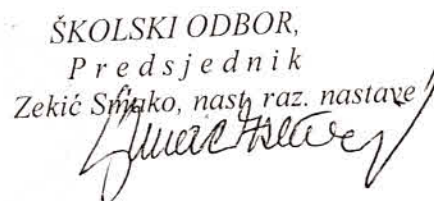 ŠKOLSKI ODBOR,
P r e d s j e d n i k
Zekić Smako, nast. raz. nastave